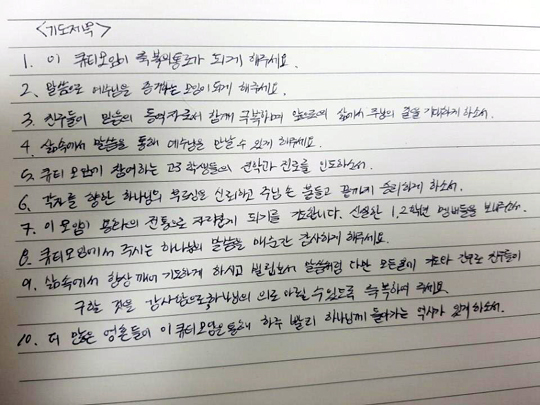 <기도제목>
1. 이 큐티모임이 축복의통로가 되게 해주세요.
2. 말씀으로 예수님을 증거하는 모임이되게 해주세요.
3. 친구들이 믿음의 동역자로서 함께 극복하며 앞으로의 삶에서 주님의 길을 기대하게 하소서.
4. 삶속에서 말씀을 통해 예수님을 만날 수 있게 해주세요.
5. 큐티 모임에 참여하는 고3 학생들의 진학과 진로를 인도하소서.
6. 각자를 향한 하나님의 부르심을 신뢰하고 주님 손 붙들고 끝까지 승리하게 하소서.
7. 이 모임이 용화의 전통으로 자리잡게 되기를 간구합니다. 신실한 1,2학년 멤버들을 보내주소서.
8. 큐티모임에서 주시는 하나님의 말씀을 매순간 감사하게 해주세요.
9. 삶속에서 항상 깨어 기도하게 하시고 빌립보서 말씀처럼 다만 모든일에 기도와 간구로 친구들이
구할 것을 감사함으로 하나님의 의로 아뢸 수 있도록 축복하여 주세요.
10. 더 많은 영혼들이 이 큐티모임을 통해 하루 빨리 하나님께 돌아가는 역사가 있게 하소서.